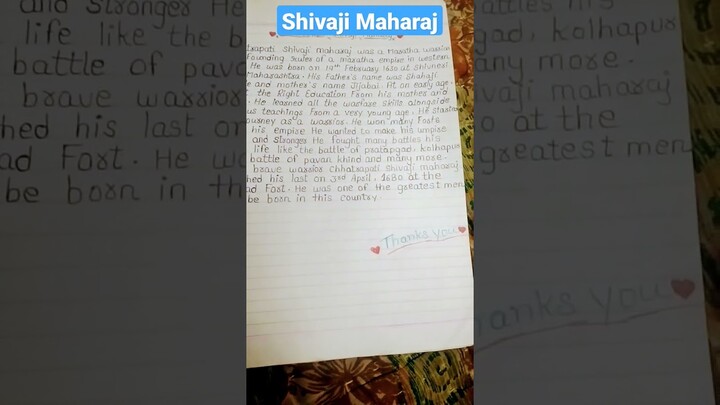 Shivaji Maharaj
trapati Shivaji maharaj was a Maratha warrior
founding ruler of a maratha empire in western
He was born on 19th February 1630 at Shivneri
Maharashtra. His Father's name was Shahaji
e and mother's name Jijabai. At an early age,
the Right Education From his mother and
. He learned all the warfare skills alongside
us teachings From a very young age. He started
ourney as a warrior. He won many Forts
his empire He wanted to make his umpire
and Stronger He fought many battles his
life like the battle of pratapgad, kolhapur
battle of pavan khind and many more.
brave warrior chhatrapati shivaji maharaj
hed his last on 3rd April, 1680 at the
ad Fort. He was one of the greatest men
be born in this country.
Thanks you
and Stronger He
life like the b
battle of pavan
brave warrior
hed his last on
ad Fort. He w
be born in th
ttles his
gad, kolhapur
any more.
i maharaj
0 at the
greatest men
hanks you